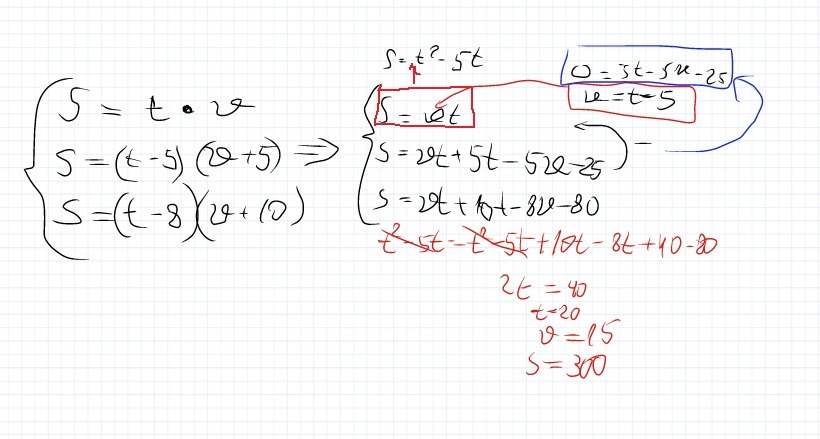 S = t · v
S = (t-5)(v+5) ⇒
S = (t-8)(v+10)
S = t² - 5t
0 = 5t - 5v - 25
v = t - 5
S = vt
S = vt + 5t - 5v - 25
-
S = vt + 10t - 8v - 80
t² - 5t = t² - 5t + 10t - 8t + 40 - 80
2t = 40
t = 20
v = 15
S = 300